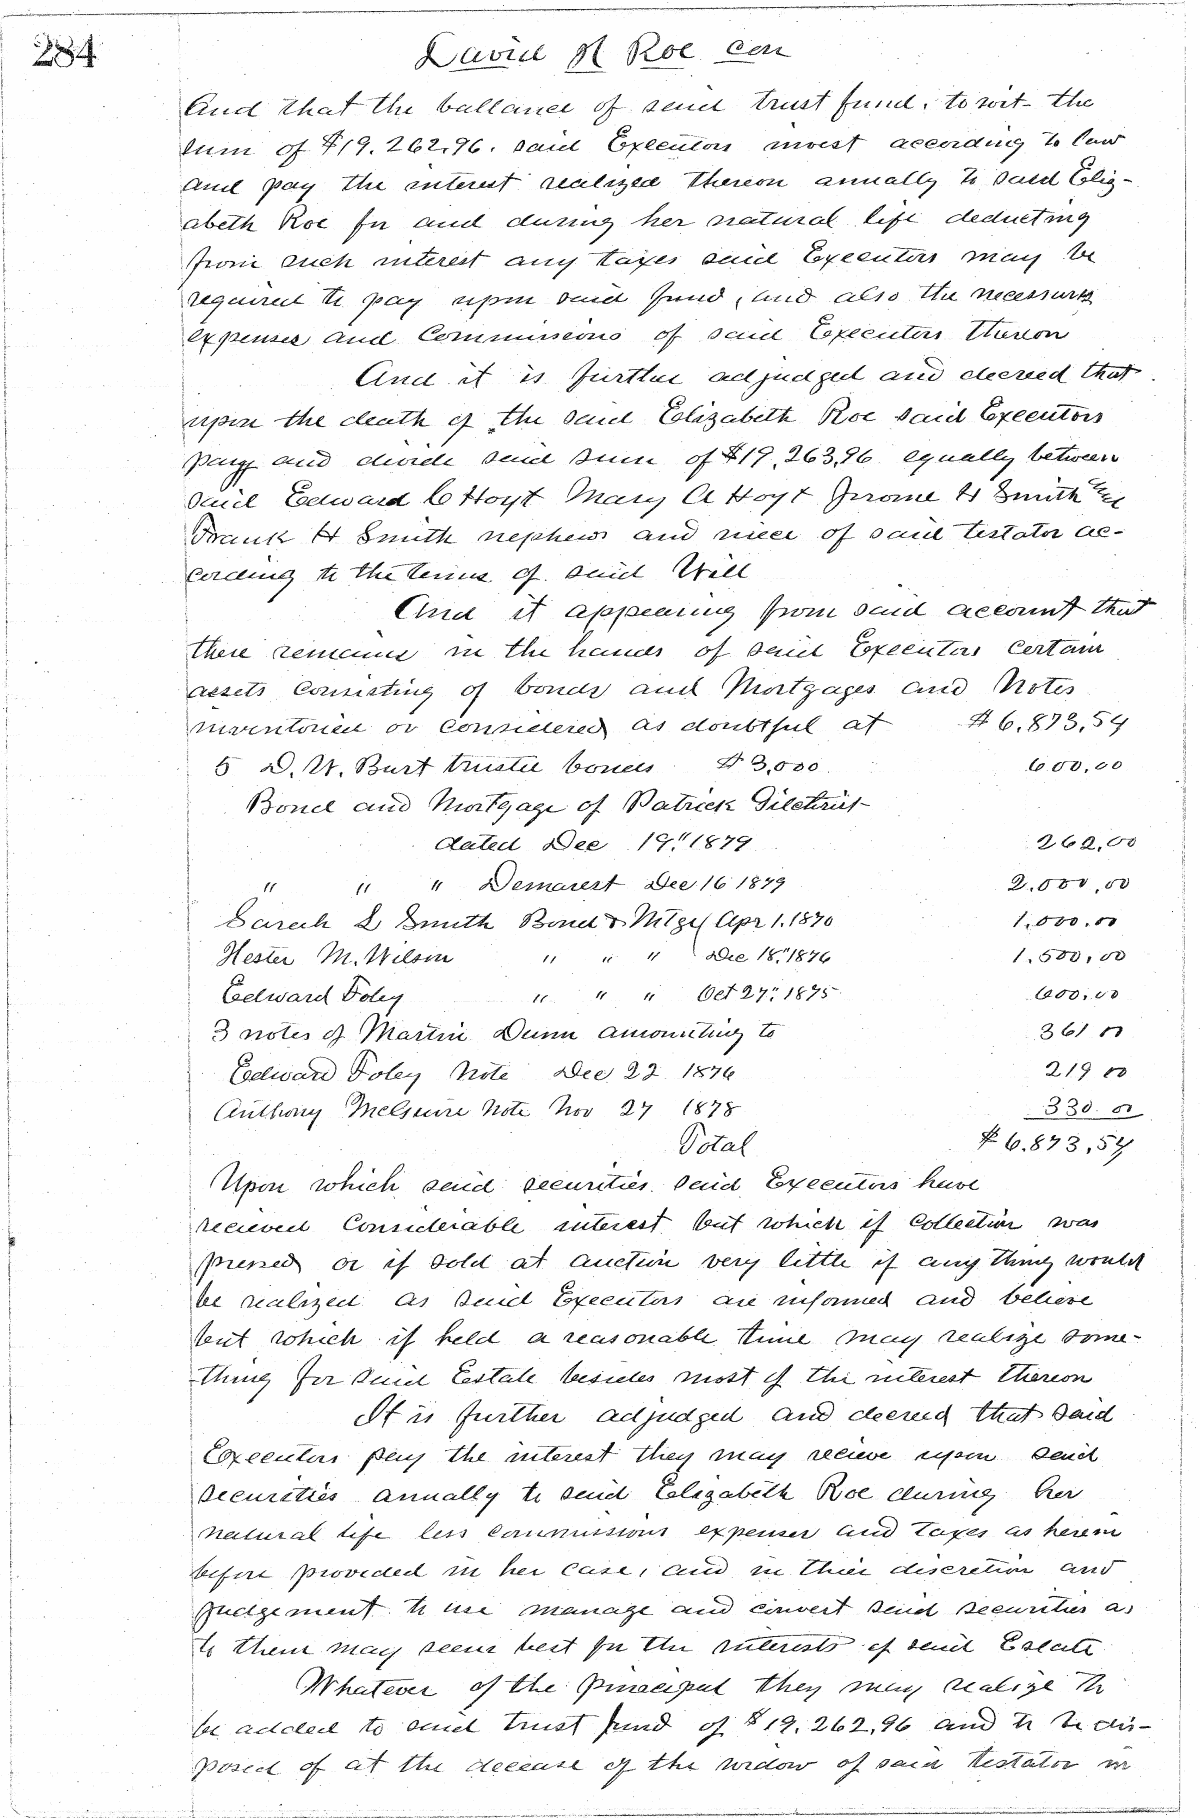 284
David H Roe con
And that the ballance of said trust fund, to wit the
sum of $19.262,96. said Executors invest according to law
and pay the interest realized thereon anually to said Eliz-
abeth Roe for and during her natural life deducting
from such interest any taxes said Executors may be
required to pay upon said fund, and also the necessary
expenses and Commissions of said Executors thereon
And it is further adjudged and decreed that
upon the death of the said Elizabeth Roe said Executors
pay and divide said sum of $19,263,96 equally between
said Edward C Hoyt Mary A Hoyt Jerome H Smith and
Frank H Smith nephews and niece of said testator ac-
cording to the terms of said Will
And it appearing from said account that
there remains in the hands of said Executors certain
assets Consisting of bonds and Mortgages and Notes
inventoried or considered as doubtful at $6,873,54
5 D. W. Burt trustee bonds $3,000 600,00
Bond and Mortgage of Patrick
dated Dec 19" 1879 262,00
" " " Demarest Dec 16 1879 2.000,00
Sarah L Smith Bond & Mtge Apr 1. 1870 1,000.00
Hester M. Wilson " " " Dec 18" 1876 1.500,00
Edward Foley " " " Oct 27" 1875 600,00
3 notes of Martin Dunn amounting to 361 00
Edward Foley Note Dec 22 1876 219 00
Anthony McGuire Note Nov 27 1878 330.00
Total $6.873,54
Upon which said securities said Executors have
recieved Considerable interest but which if Collection was
pressed or if sold at auction very little if any thing would
be realized as said Executors are informed and believe
but which if held a reasonable time may realize some-
thing for said Estate besides most of the interest thereon
It is further adjudged and decreed that said
Executors pay the interest they may recieve upon said
securities anually to said Elizabeth Roe during her
natural life less commissions expenses and taxes as herein
before provided in her case, and in thier discretion and
judgement to use manage and convert said securities as
to them may seem best for the interests of said Estate
Whatever of the principal they may realize to
be added to said trust fund of $19,262,96 and to be dis-
posed of at the decease of the widow of said testator in